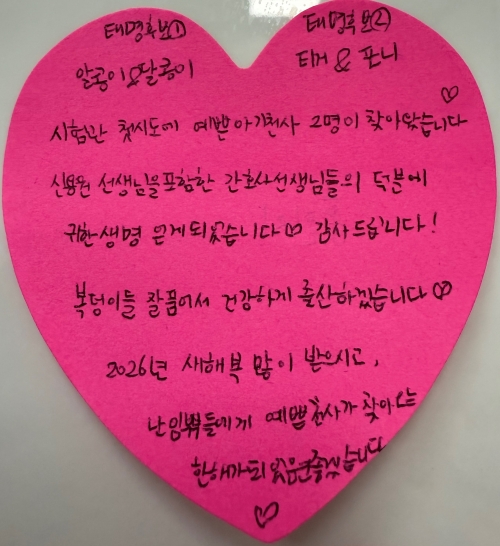 태명후보① 태명후보②
알콩이&달콩이 티거 & 포니
시험관 첫시도에 예쁜아기천사 2명이 찾아왔습니다♡
신용원 선생님을포함한 간호사선생님들의 덕분에
귀한생명 얻게되었습니다♡ 감사드립니다!
복덩이들 잘품어서 건강하게 출산하겠습니다♡
2026년 새해복 많이 받으시고,
난임부부들에게 예쁜천사가 찾아오는
한해가되었으면좋겠습니다
♡